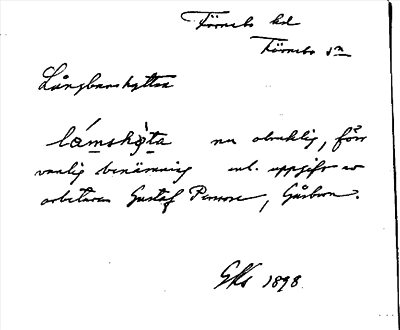 Färnebo hd
Färnebo sn
Långbanshyttan
lámshy̆ta nu obruklig, förr
vanlig benämning enl. uppgift av
arbetaren Gustaf Persson, Gåsborn.
GKs 1898.